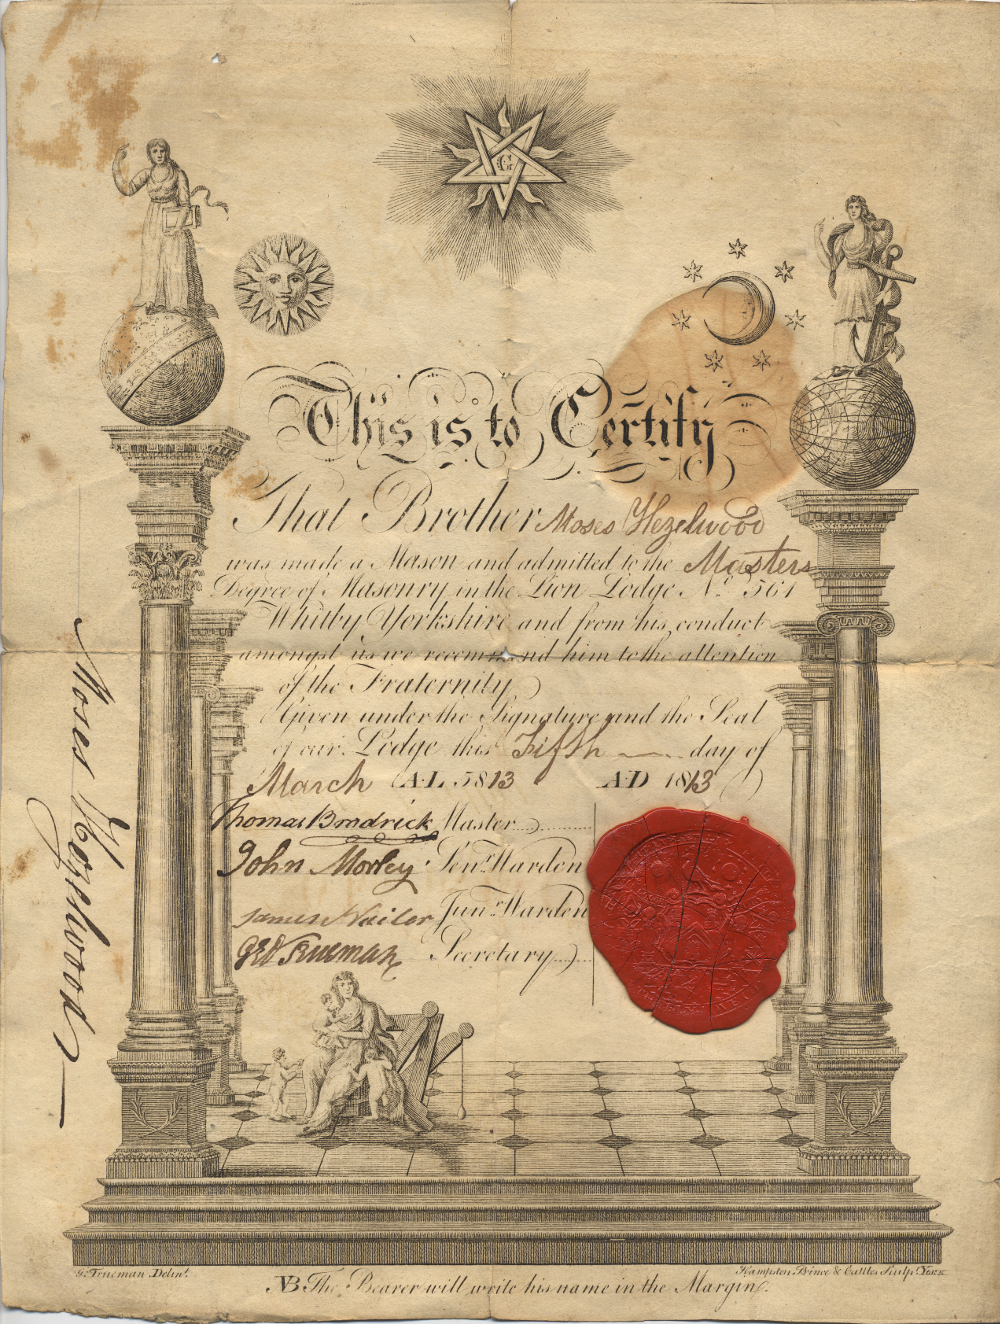 G
This is to Certify
That Brother Moses Hezelwood
was made a Mason and admitted to the Masters
Degree of Masonry in the Lion Lodge No. 561
Whitby Yorkshire and from his conduct
amongst us we recommend him to the attention
of the Fraternity
Given under the Signature and the Seal
of our Lodge this Fifth day of
March A·L 5813 A·D 1813
Thomas Brodrick Master
John Morley Senr. Warden
James Nailer Junr. Warden
Geo Trueman Secretary
Moses Hezelwood
G. Trueman Delint.
Hampston, Prince & Cattles Sculp. York
NB The Bearer will write his name in the Margin.